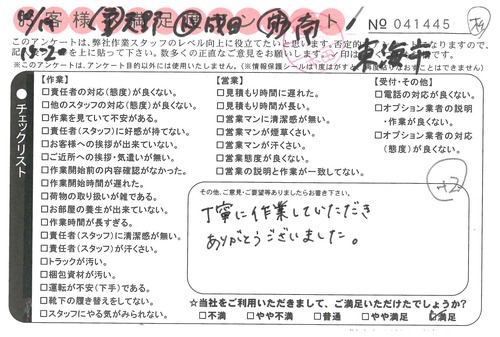 お客様満足度アンケート
№ 041445
15-20
東海市
このアンケートは、弊社作業スタッフのレベル向上に役立てたいと思います。
※このアンケートは、アンケート目的以外には使用いたしません。
チェックリスト
【作業】
□責任者の対応(態度)が良くない。
□他のスタッフの対応(態度)が良くない。
□作業を見ていて不安がある。
□責任者(スタッフ)に好感が持てない。
□お客様への挨拶が出来ていない。
□ご近所への挨拶・気遣いが無い。
□作業開始前の内容確認がなかった。
□作業開始時間が遅れた。
□荷物の取り扱いが雑である。
□お部屋の養生が出来ていない。
□作業時間が長すぎる。
□責任者(スタッフ)に清潔感が無い。
□責任者(スタッフ)が汗くさい。
□トラックが汚い。
□梱包資材が汚い。
□運転が不安(下手)である。
□靴下の履き替えをしてない。
□スタッフにやる気がみられない。
【営業】
□見積もり時間に遅れた。
□見積もり時間が長い。
□営業マンに清潔感が無い。
□営業マンが煙草くさい。
□営業マンが汗くさい。
□営業態度が良くない。
□営業の説明と作業が一致してない。
【受付・その他】
□電話の対応が良くない。
□オプション業者の説明
・作業が良くない。
□オプション業者の対応
(態度)が良くない。
+2
その他、ご意見・ご要望等ありましたらお書き下さい。
丁寧に作業していただき
ありがとうございました。
☆当社をご利用いただきまして、ご満足いただけたでしょうか?
□不満 □やや不満 □普通 □やや満足 □満足